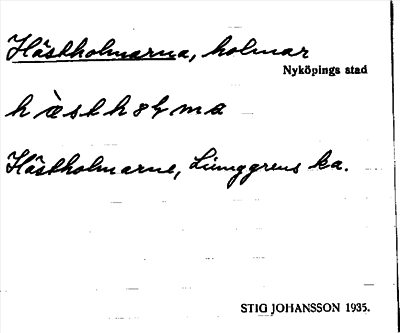 Hästholmarna, holmar
Nyköpings stad
Hästholmarne, Ljunggrens ka.
STIG JOHANSSON 1935.